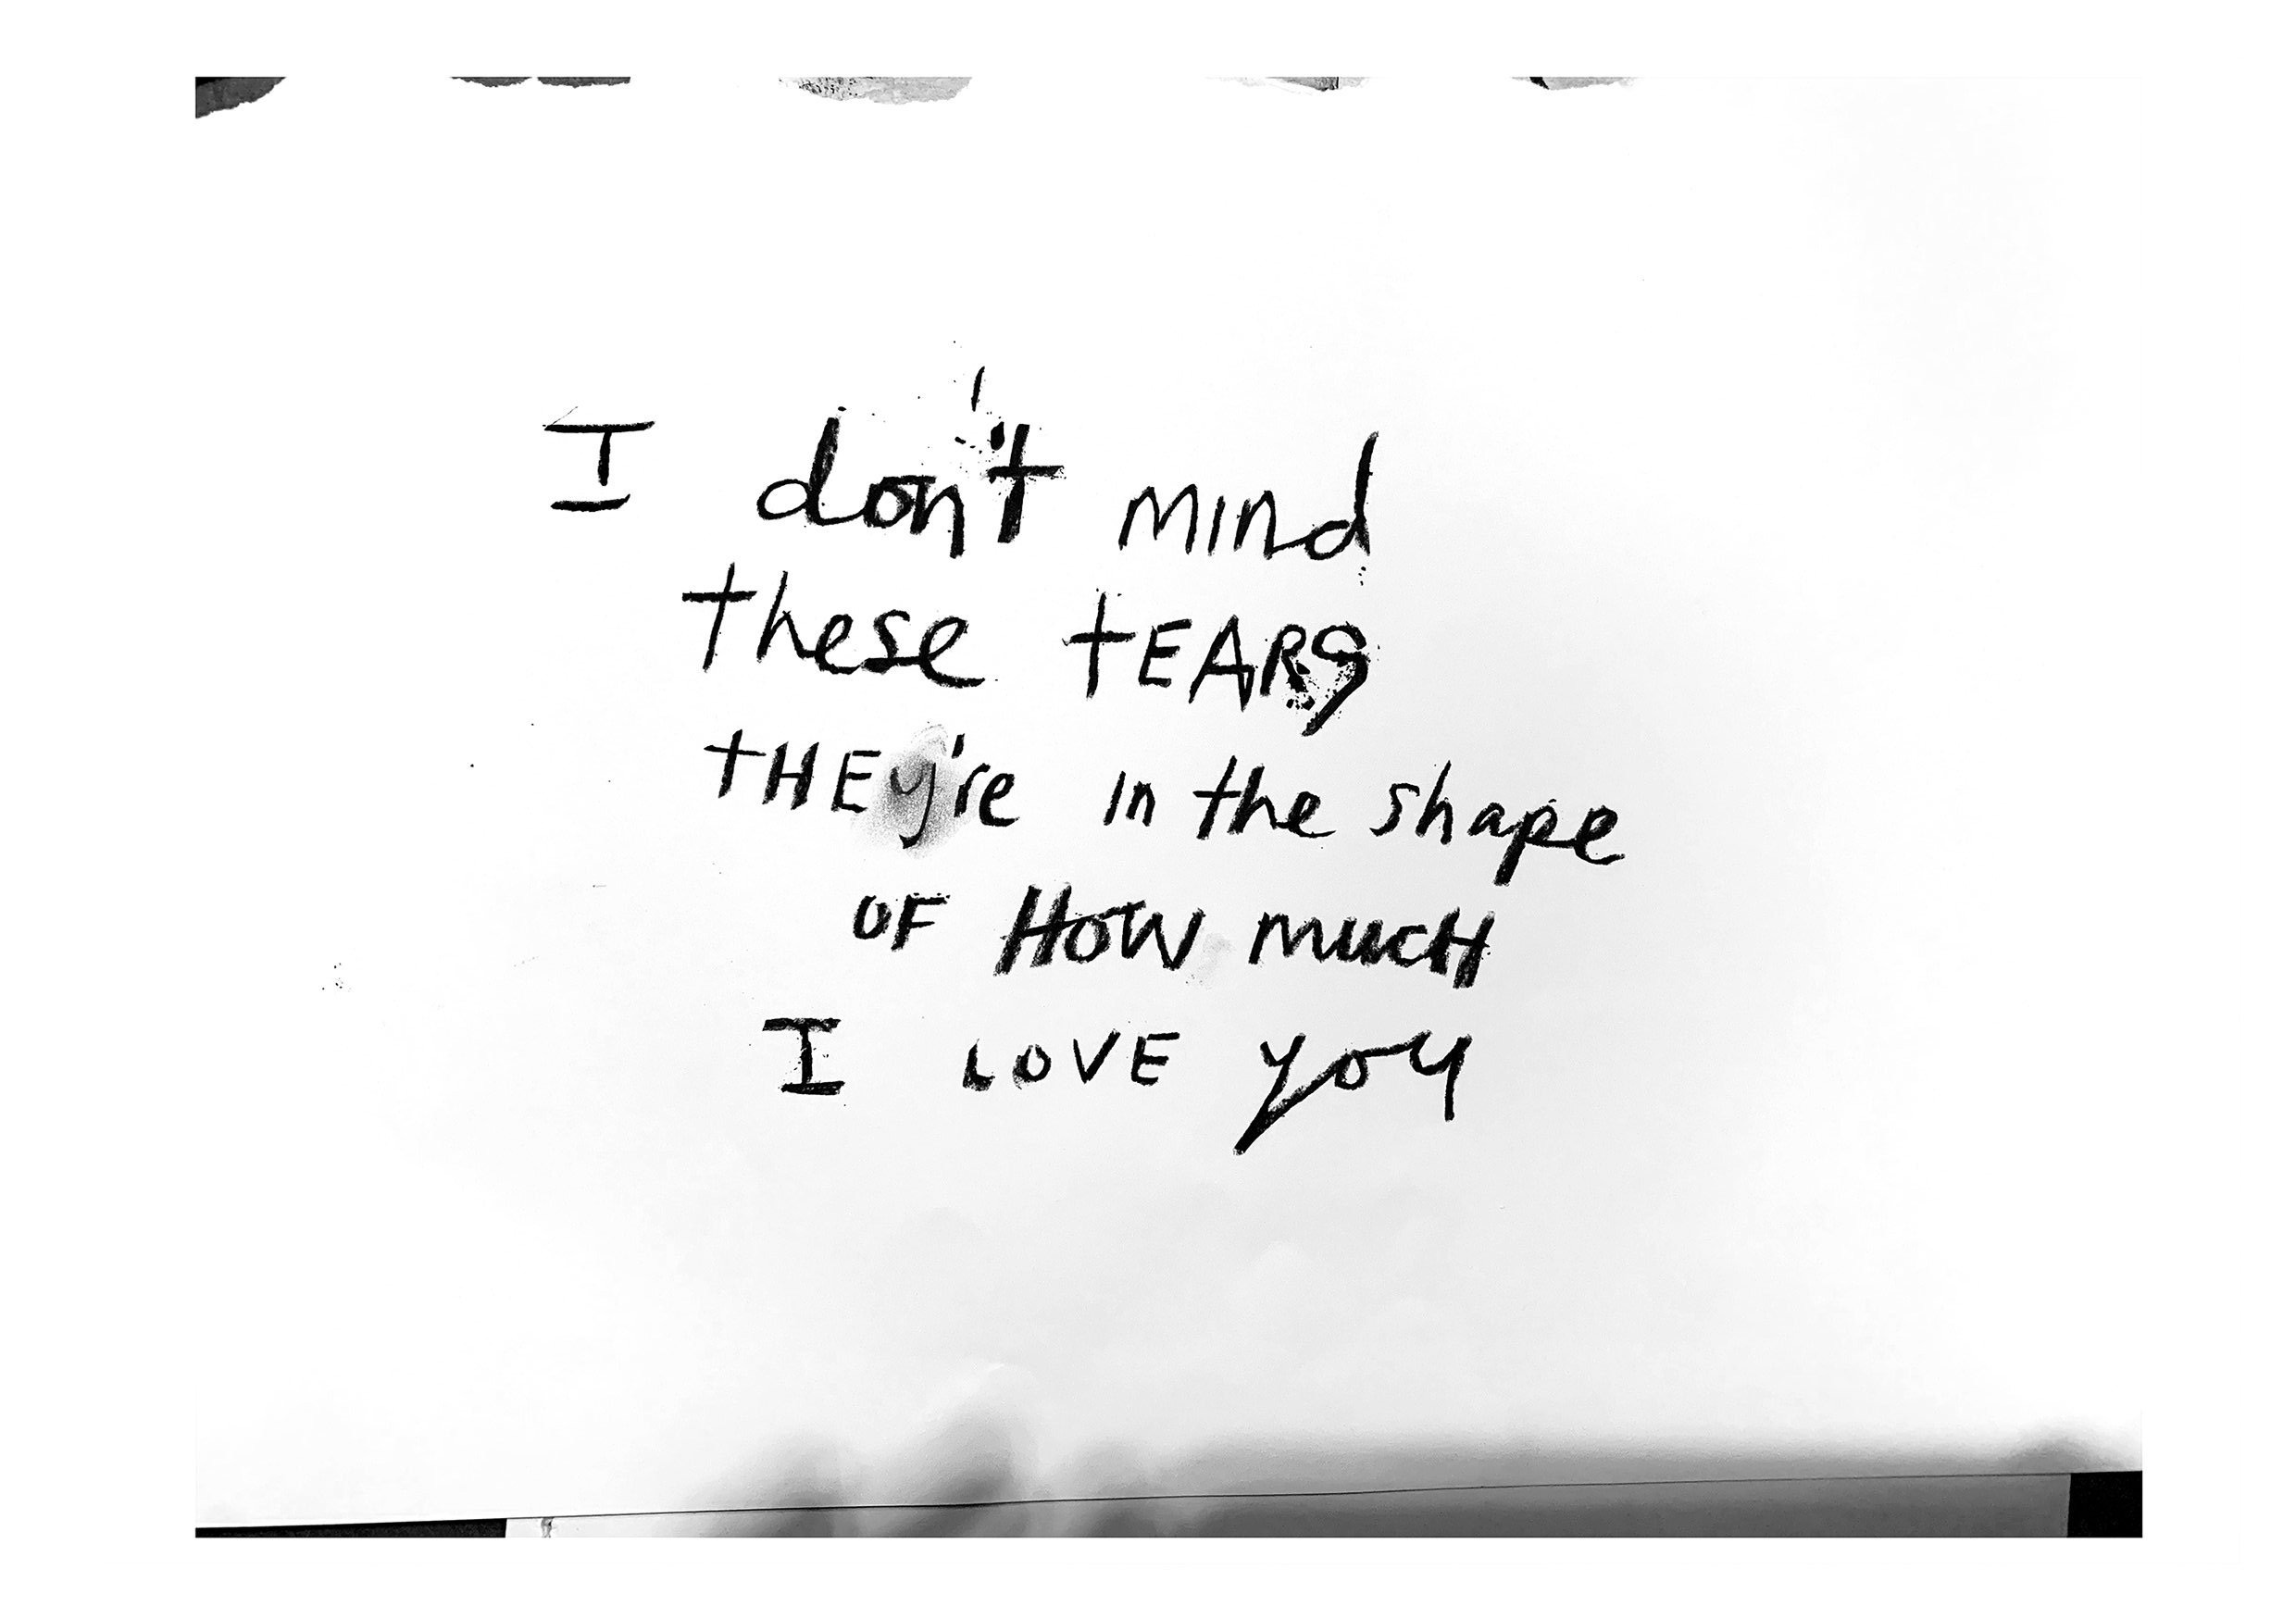 I don't mind
these tEARS
tHEy're in the shape
OF HOW mucH
I LOVE you